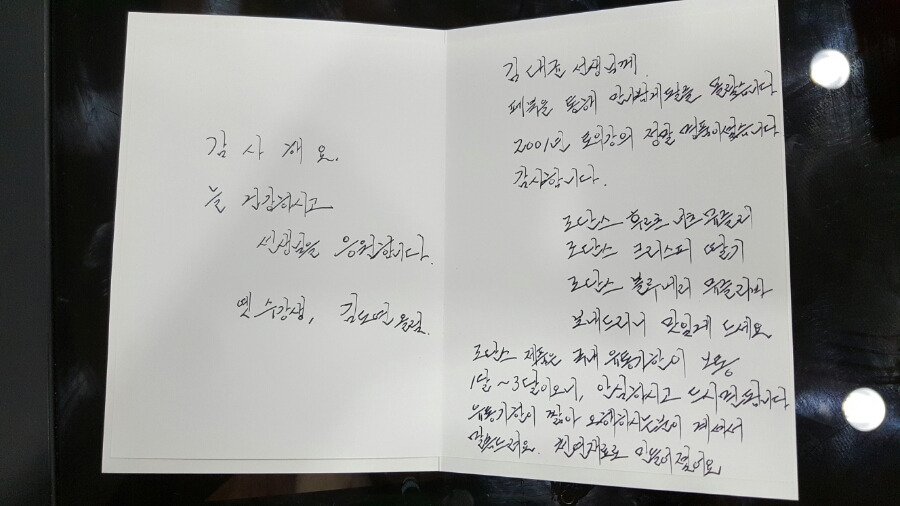 감사해요.
늘 건강하시고
선생님을 응원합니다.
옛 수강생, 김도연 올림.
김 선생님께.
페북을 통해 안타깝게도 되었습니다
2001년 토익강의 정말 명품이었습니다
감사합니다.
조단스 후르츠 너츠 뮤즐리
조단스 크리스피 딸기
조단스 블루베리 뮤즐리바
보내드리니 맛있게 드세요
조단스 제품은 국내 유통기한이 보통
1달~3달이오니, 안심하시고 드시면됩니다
유통기한이 짧아 오해하시는분이 계셔서
말씀드려요. 천연재료로 만들어졌어요